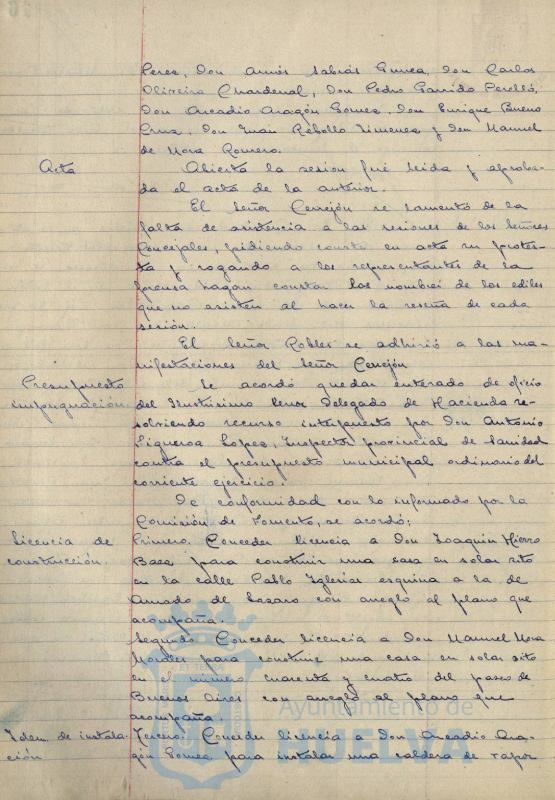 Perez, Don Amós Sabrás Gurrea, Don Carlos
Oliveira Chardenal, Don Pedro Garrido Perelló,
Don Arcadio Aragón Gomez, Don Enrique Bueno
Cruz, Don Juan Rebollo Jimenez y Don Manuel
de Mora Romero.
Acta
Abierta la sesión fué leida y aproba-
da el acta de la anterior.
El Señor Cerrejón se lamentó de la
falta de asistencia a las sesiones de los Señores
Concejales, pidiendo conste en acta su protes-
ta y rogando a los representantes de la
prensa hagan constar los nombres de los ediles
que no asisten al hacer la reseña de cada
sesión.
El Señor Robles se adhirió a las ma-
nifestaciones del Señor Cerrejón
Presupuesto
impugnación.
Se acordó quedar enterado de oficio
del Ilustrísimo Señor Delegado de Hacienda re-
solviendo recurso interpuesto por Don Antonio
Figueroa Lopez, Inspector provincial de Sanidad
contra el presupuesto municipal ordinario del
corriente ejercicio.
De conformidad con lo informado por la
Comisión de Fomento, se acordó:
Licencia de
construcción.
Primero. Conceder licencia a Don Joaquin Hierro
Baez para construir una casa en solar sito
en la calle Pablo Iglesias esquina a la de
Amado de Lazaro con arreglo al plano que
acompaña.
Segundo. Conceder licencia a Don Manuel Mora
Morales para construir una casa en solar sito
en el número cuarenta y cuatro del paseo de
Buenos Aires con arreglo al plano que
acompaña.
Idem. de instala-
ción
Tercero. Conceder licencia a Don Arcadio Ara-
gón Gomez para instalar una caldera de vapor
Ayuntamiento de
HUELVA